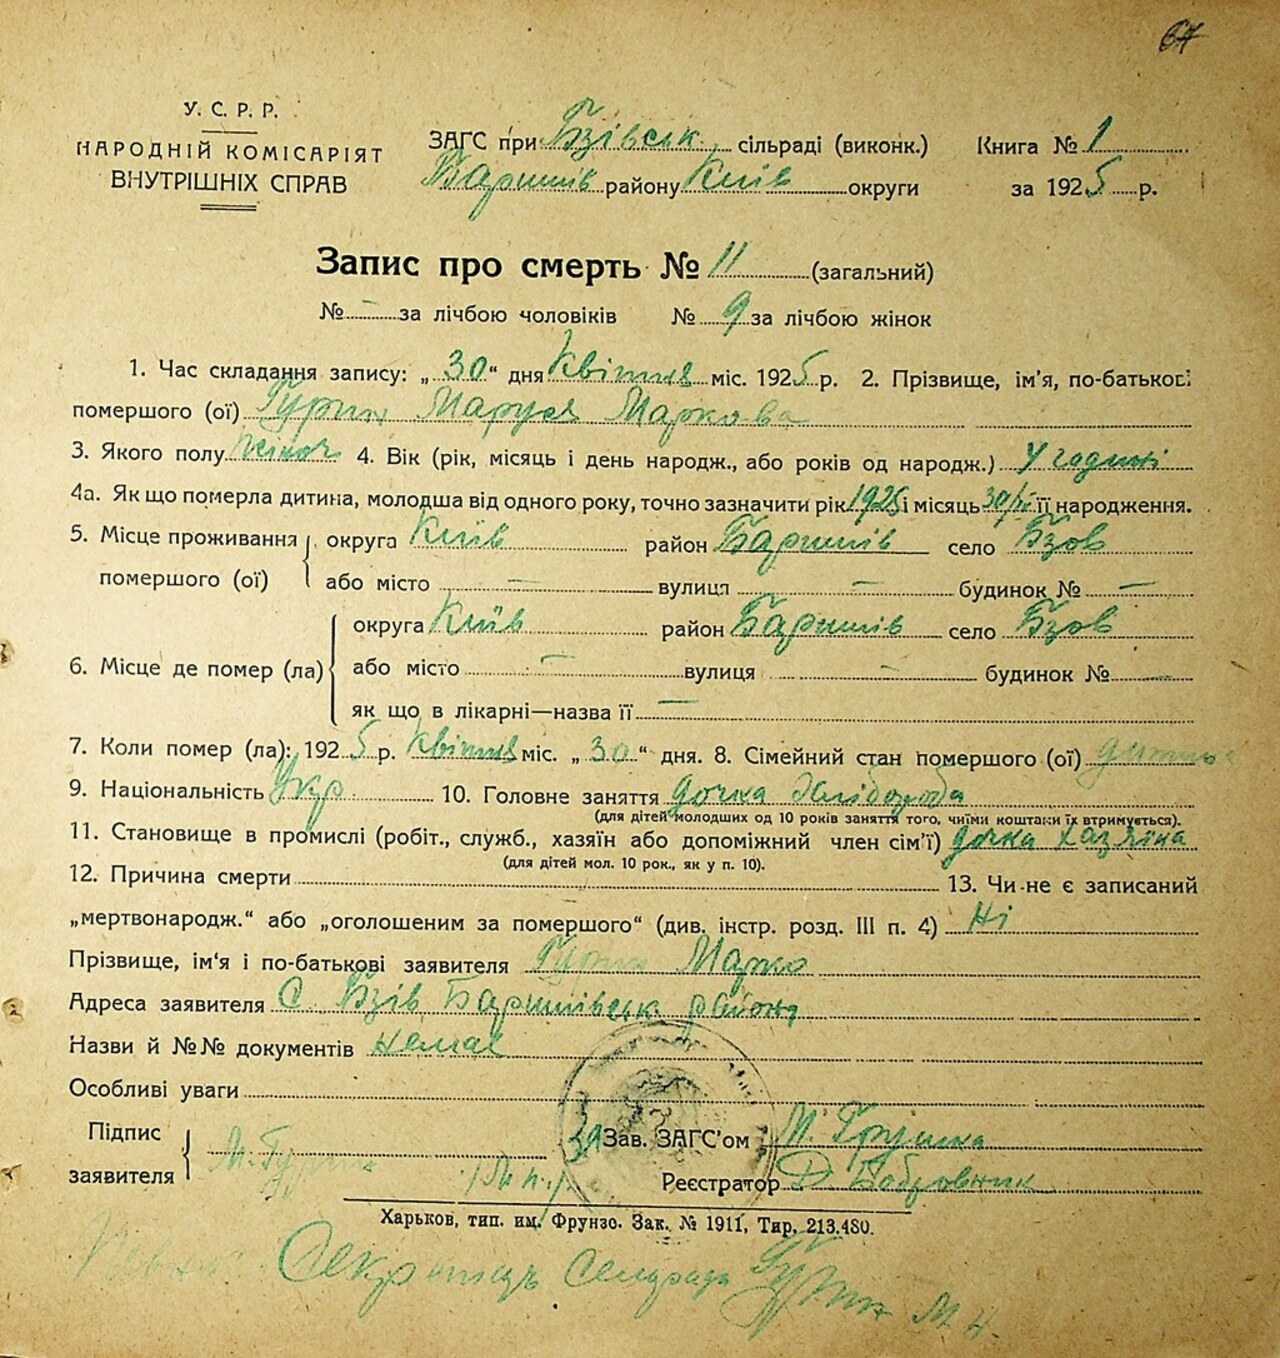 67
У. С. Р. Р.
НАРОДНІЙ КОМІСАРІЯТ
ВНУТРІШНІХ СПРАВ
ЗАГС при Бзівськ. сільраді (виконк.) Книга № 1
Баришів району Київ округи за 1925 р.
Запис про смерть № 11 (загальний)
№ — за лічбою чоловіків № 9 за лічбою жінок
1. Час складання запису: „ 30 “ дня Квітня міс. 1925 р. 2. Прізвище, ім’я, по-батькові
помершого (ої) Гурин Маруся Маркова
3. Якого полу жіноч 4. Вік (рік, місяць і день народж., або років од народж.) У годині
4а. Як що померла дитина, молодша від одного року, точно зазначити рік 1925 і місяць 30/IV її народження.
5. Місце проживання округа Київ район Баришів село Бзов
помершого (ої) або місто — вулиця — будинок № —
округа Київ район Баришів село Бзов
6. Місце де помер (ла) або місто — вулиця — будинок № —
як що в лікарні—назва її —
7. Коли помер (ла): 1925 р. Квітня міс. „ 30 “ дня. 8. Сімейний стан помершого (ої) дитина
9. Національність Укр. 10. Головне заняття дочка Хлібороба
(для дітей молодших од 10 років заняття того, чиїми коштами їх втримується).
11. Становище в промислі (робіт., служб., хазяїн або допоміжний член сім’ї) дочка хазяїна
(для дітей мол. 10 рок., як у п. 10).
12. Причина смерти 13. Чи не є записаний
„мертвонародж.“ або „оголошеним за помершого“ (див. інстр. розд. III п. 4) Ні
Прізвище, ім’я і по-батькові заявителя Гурин Марко
Адреса заявителя С. Бзів Баришівськ району
Назви й №№ документів немає
Особливі уваги
Підпис
заявителя М. Гурин
За Зав. ЗАГС’ом М. Грушка
Реєстратор Д Бобровник
Харьков, тип. им. Фрунзе. Зак. № 1911, Тир. 213.480.
Секретарь Сельрада Гурин М. Н.